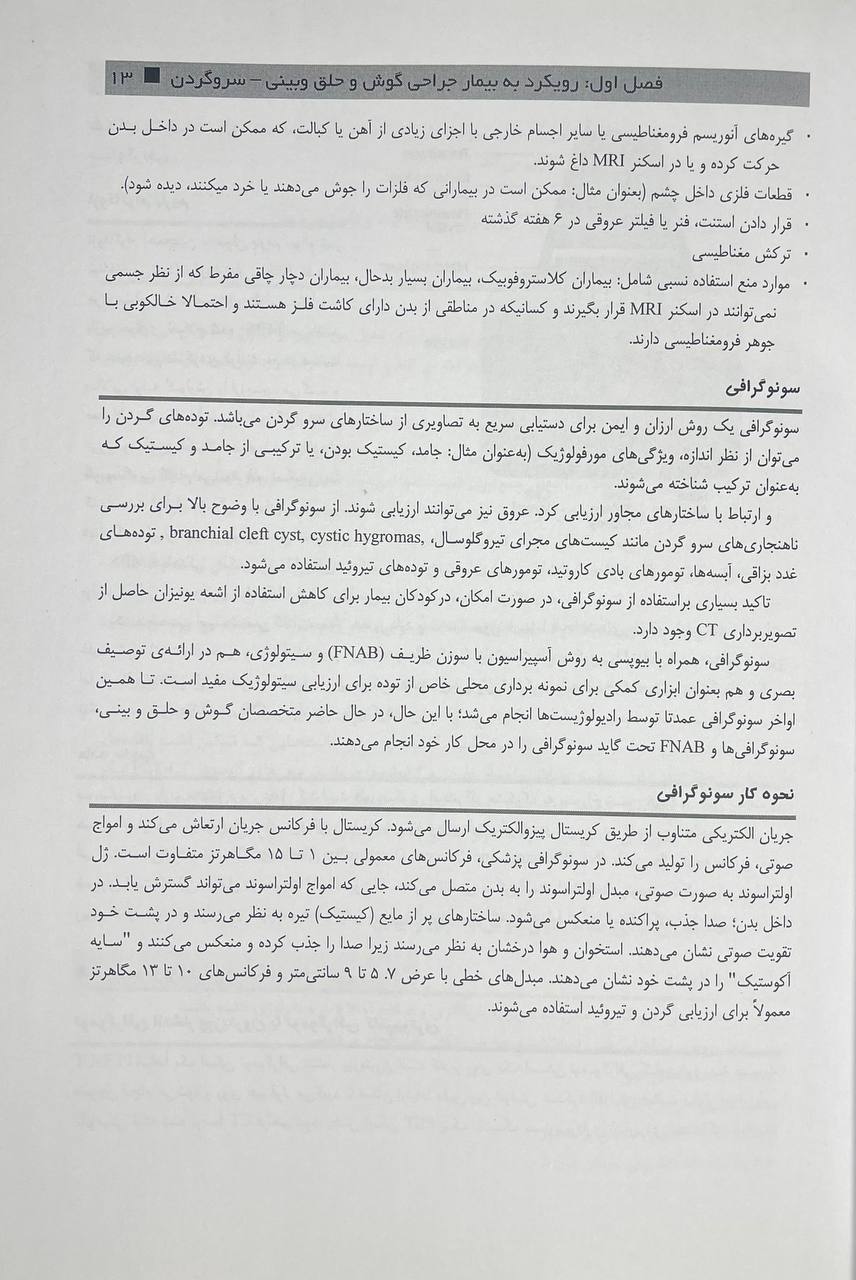 فصل اول: رویکرد به بیمار جراحی گوش و حلق وبینی – سروگردن ■ ۱۳
· گیره‌های آنوریسم فرومغناطیسی یا سایر اجسام خارجی با اجزای زیادی از آهن یا کبالت، که ممکن است در داخل بدن
حرکت کرده و یا در اسکنر MRI داغ شوند.
· قطعات فلزی داخل چشم (بعنوان مثال: ممکن است در بیمارانی که فلزات را جوش می‌دهند یا خرد میکنند، دیده شود).
· قرار دادن استنت، فنر یا فیلتر عروقی در ۶ هفته گذشته
· ترکش مغناطیسی
· موارد منع استفاده نسبی شامل: بیماران کلاستروفوبیک، بیماران بسیار بدحال، بیماران دچار چاقی مفرط که از نظر جسمی
نمی‌توانند در اسکنر MRI قرار بگیرند و کسانیکه در مناطقی از بدن دارای کاشت فلز هستند و احتمالا خالکوبی با
جوهر فرومغناطیسی دارند.
سونوگرافی
سونوگرافی یک روش ارزان و ایمن برای دستیابی سریع به تصاویری از ساختارهای سرو گردن می‌باشد. توده‌های گردن را
می‌توان از نظر اندازه، ویژگی‌های مورفولوژیک (به‌عنوان مثال: جامد، کیستیک بودن، یا ترکیبی از جامد و کیستیک که
به‌عنوان ترکیب شناخته می‌شوند.
و ارتباط با ساختارهای مجاور ارزیابی کرد. عروق نیز می‌توانند ارزیابی شوند. از سونوگرافی با وضوح بالا برای بررسی
ناهنجاری‌های سرو گردن مانند کیست‌های مجرای تیروگلوسال، branchial cleft cyst, cystic hygromas, , توده‌های
غدد بزاقی، آبسه‌ها، تومورهای بادی کاروتید، تومورهای عروقی و توده‌های تیروئید استفاده می‌شود.
تاکید بسیاری براستفاده از سونوگرافی، در صورت امکان، درکودکان بیمار برای کاهش استفاده از اشعه یونیزان حاصل از
تصویربرداری CT وجود دارد.
سونوگرافی، همراه با بیوپسی به روش آسپیراسیون با سوزن ظریف (FNAB) و سیتولوژی، هم در ارائه‌ی توصیف
بصری و هم بعنوان ابزاری کمکی برای نمونه برداری محلی خاص از توده برای ارزیابی سیتولوژیک مفید است. تا همین
اواخر سونوگرافی عمدتا توسط رادیولوژیست‌ها انجام می‌شد؛ با این حال، در حال حاضر متخصصان گوش و حلق و بینی،
سونوگرافی‌ها و FNAB تحت گاید سونوگرافی را در محل کار خود انجام می‌دهند.
نحوه کار سونوگرافی
جریان الکتریکی متناوب از طریق کریستال پیزوالکتریک ارسال می‌شود. کریستال با فرکانس جریان ارتعاش می‌کند و امواج
صوتی، فرکانس را تولید می‌کند. در سونوگرافی پزشکی، فرکانس‌های معمولی بین ۱ تا ۱۵ مگاهرتز متفاوت است. ژل
اولتراسوند به صورت صوتی، مبدل اولتراسوند را به بدن متصل می‌کند، جایی که امواج اولتراسوند می‌تواند گسترش یابد. در
داخل بدن؛ صدا جذب، پراکنده یا منعکس می‌شود. ساختارهای پر از مایع (کیستیک) تیره به نظر می‌رسند و در پشت خود
تقویت صوتی نشان می‌دهند. استخوان و هوا درخشان به نظر می‌رسند زیرا صدا را جذب کرده و منعکس می‌کنند و "سایه
آکوستیک" را در پشت خود نشان می‌دهند. مبدل‌های خطی با عرض ۷. ۵ تا ۹ سانتی‌متر و فرکانس‌های ۱۰ تا ۱۳ مگاهرتز
معمولاً برای ارزیابی گردن و تیروئید استفاده می‌شوند.